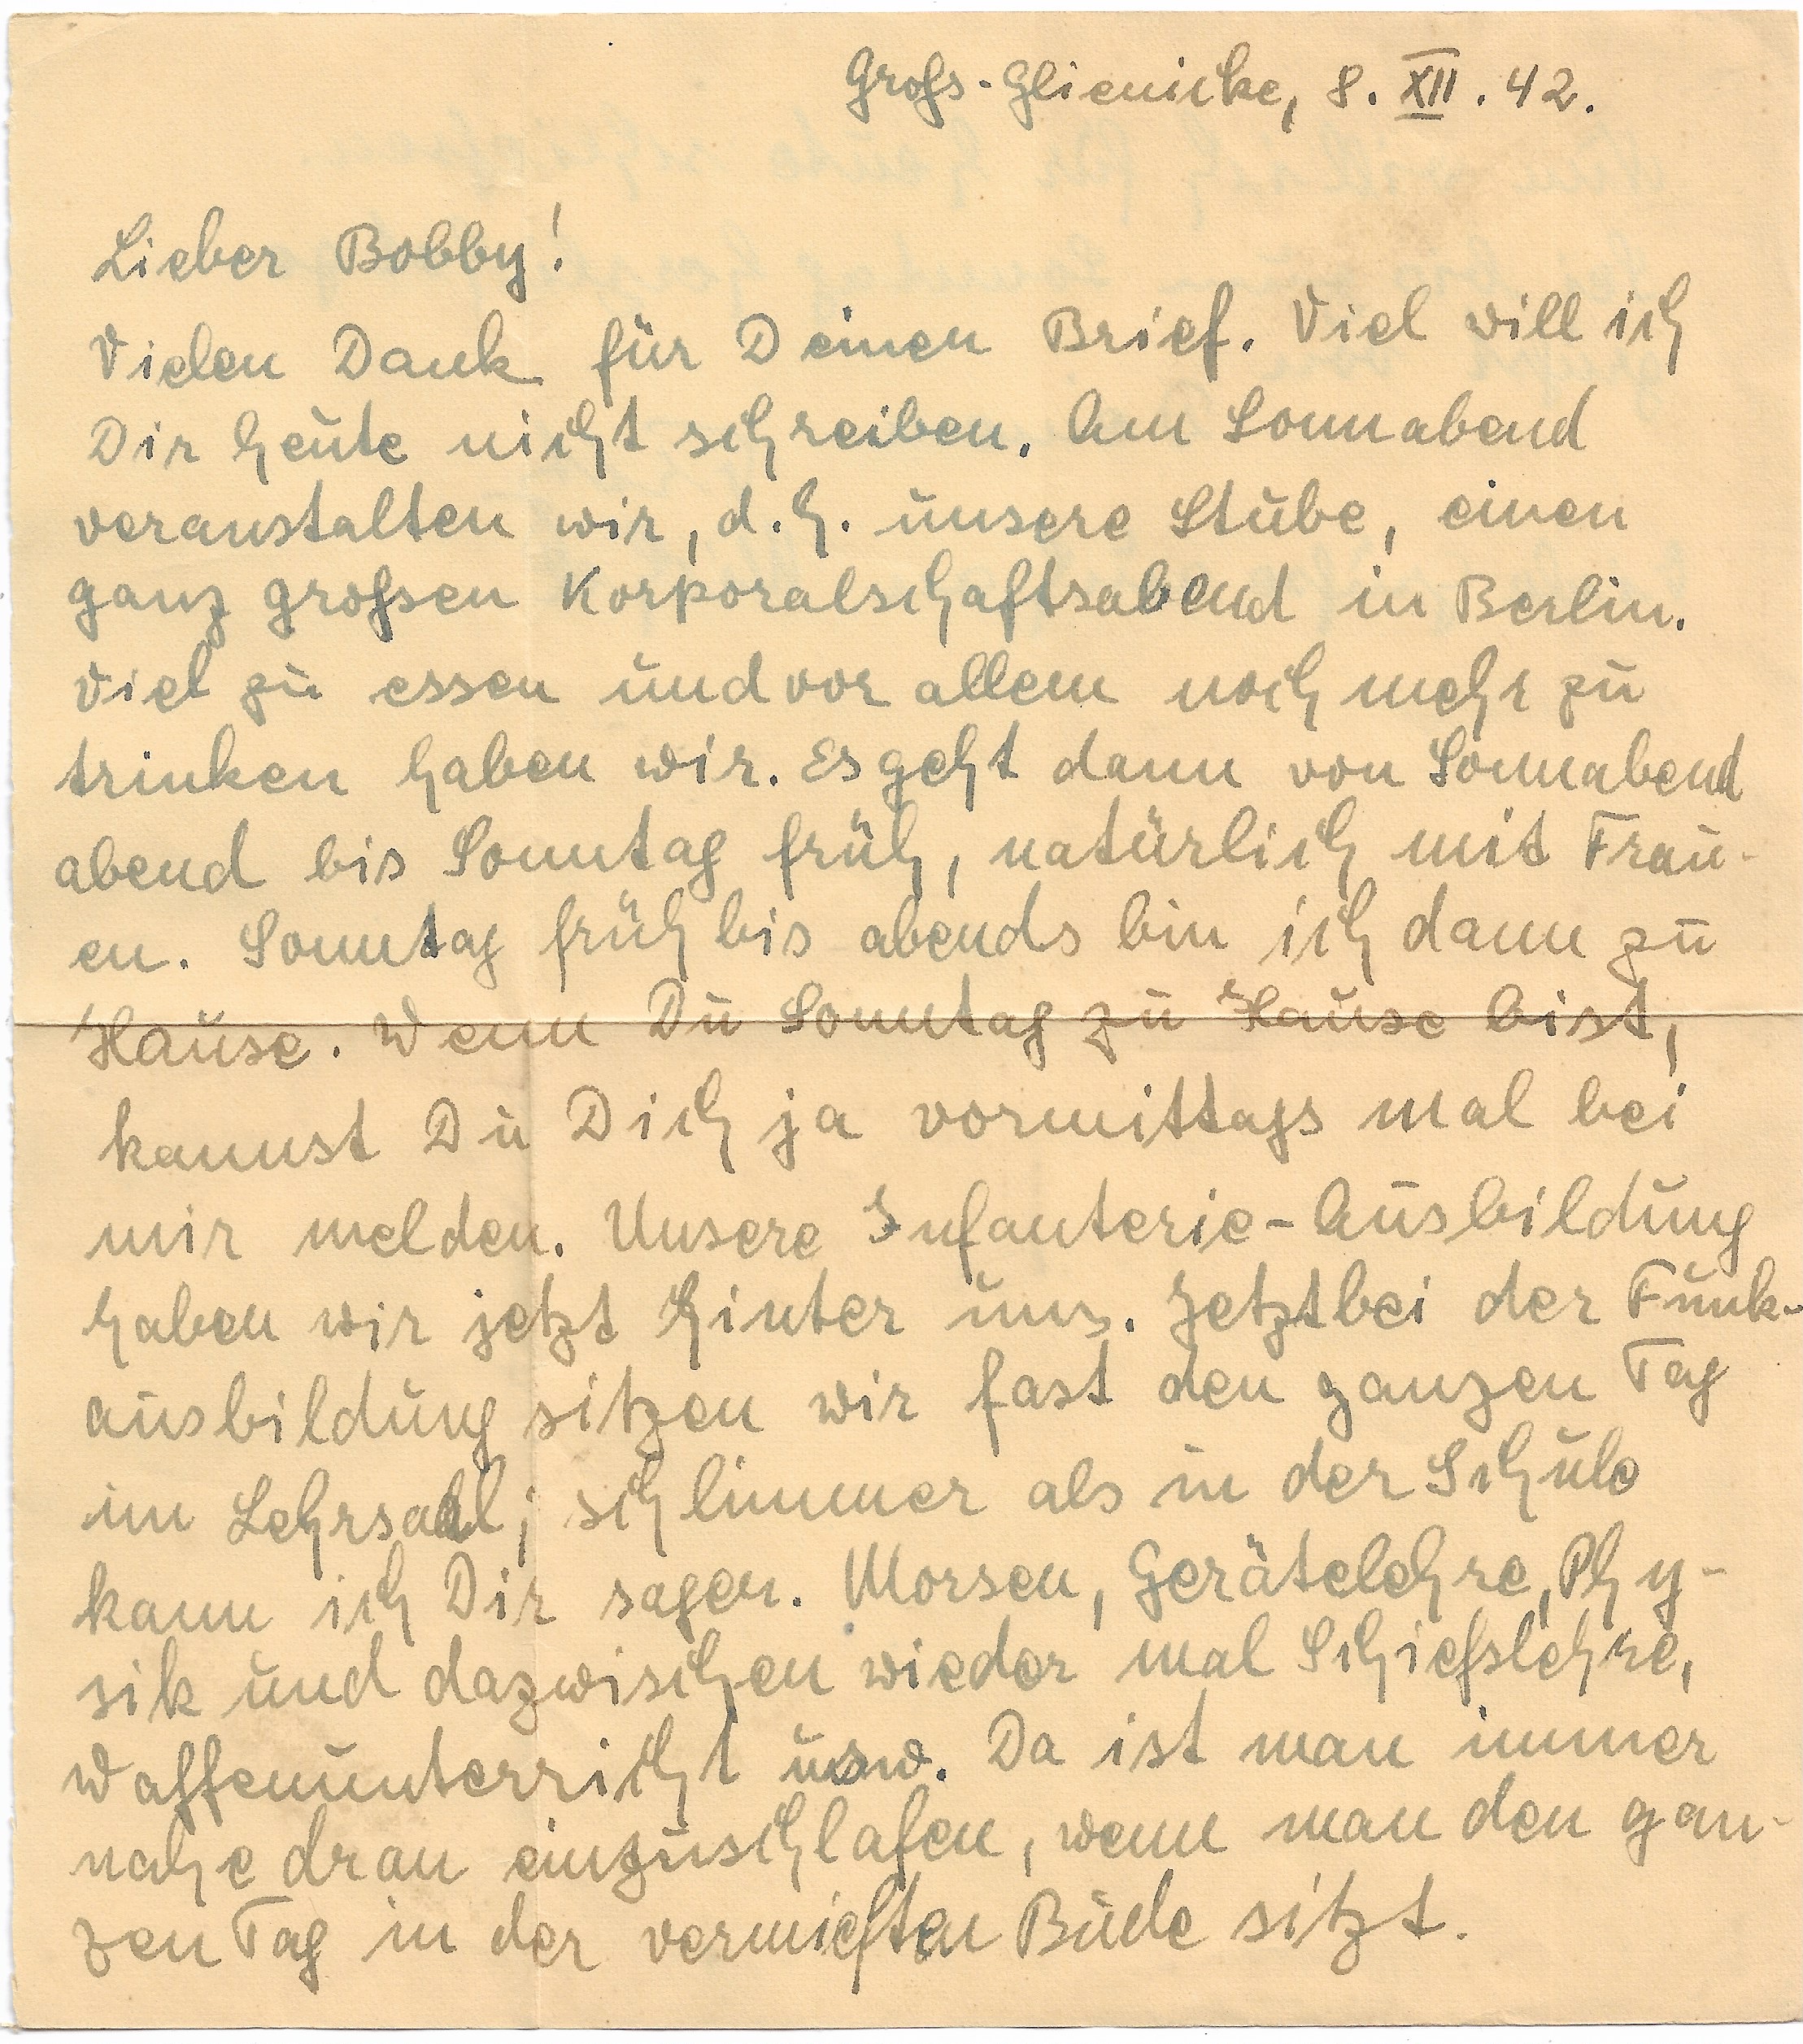 Groß-Glienicke, 8. XII. 42.
Lieber Bobby!
Vielen Dank für Deinen Brief. Viel will ich
Dir heute nicht schreiben. Am Sonnabend
veranstalten wir, d.h. unsere Stube, einen
ganz großen Korporalschaftsabend in Berlin.
Viel zu essen und vor allem noch mehr zu
trinken haben wir. Es geht dann von Sonnabend
abend bis Sonntag früh, natürlich mit Frau-
en. Sonntag früh bis abends bin ich dann zu
Hause. Wenn Du Sonntag zu Hause bist,
kannst Du Dich ja vormittags mal bei
mir melden. Unsere Infanterie-Ausbildung
haben wir jetzt hinter uns. Jetzt bei der Funk-
ausbildung sitzen wir fast den ganzen Tag
im Lehrsaal; schlimmer als in der Schule
kann ich Dir sagen. Morsen, Gerätelehre, Phy-
sik und dazwischen wieder mal Schießlehre,
Waffenunterricht usw. Da ist man immer
nahe dran einzuschlafen, wenn man den gan-
zen Tag in der vermieften Bude sitzt.